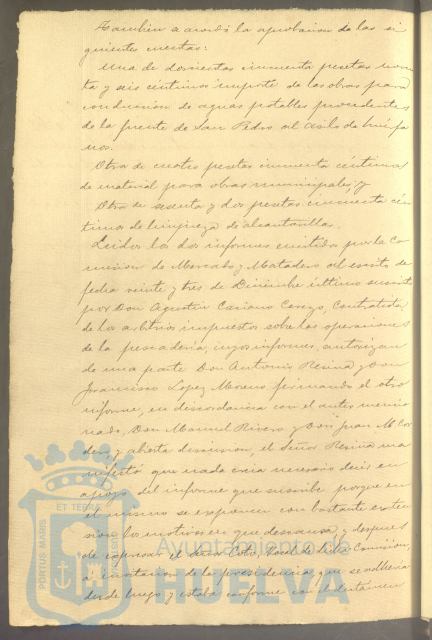 Tambien se acordó la aprobacion de las si
guientes cuentas:
Una de doscientas cincuenta pesetas noven
ta y seis céntimos importe de las obras para
conduccion de aguas potables procedentes
de la fuente de San Pedro al asilo de huérfa
nos.
Otra de cuatro pesetas cincuenta céntimos
de material para obras municipales; y
Otra de sesenta y dos pesetas cincuenta cén
timos de limpieza de alcantarillas.
Leidos los dos informes emitidos por la Co
mision de Mercado y Matadero al escrito de
fecha veinte y tres de Diciembre último suscrito
por Don Agustin Cariano Contratista
de los arbitrios impuestos sobre las operaciones
de la pescaderia, cuyos informes, autorizan
de una parte Don Antonio Resina y Don
Francisco Lopez Moreno, firmando el otro
informe, en discordancia con el antes mencio
nado, Don Manuel Rivero y Don Juan M. Cor
dero, y abierta discusion, el Señor Resina ma
nifestó que nada creia necesario decir en
apoyo del informe que suscribe porque en
el mismo se exponen con bastante exten
sion los motivos en que descansa, y despues
de expresar el Señor Coto, Vocal de dicha Comision,
á invitacion de la presidencia, que se adheria
desde luego y estaba conforme con el dictamen
PORTUS MARIS
ET TERRAE
Ayuntamiento de
HUELVA